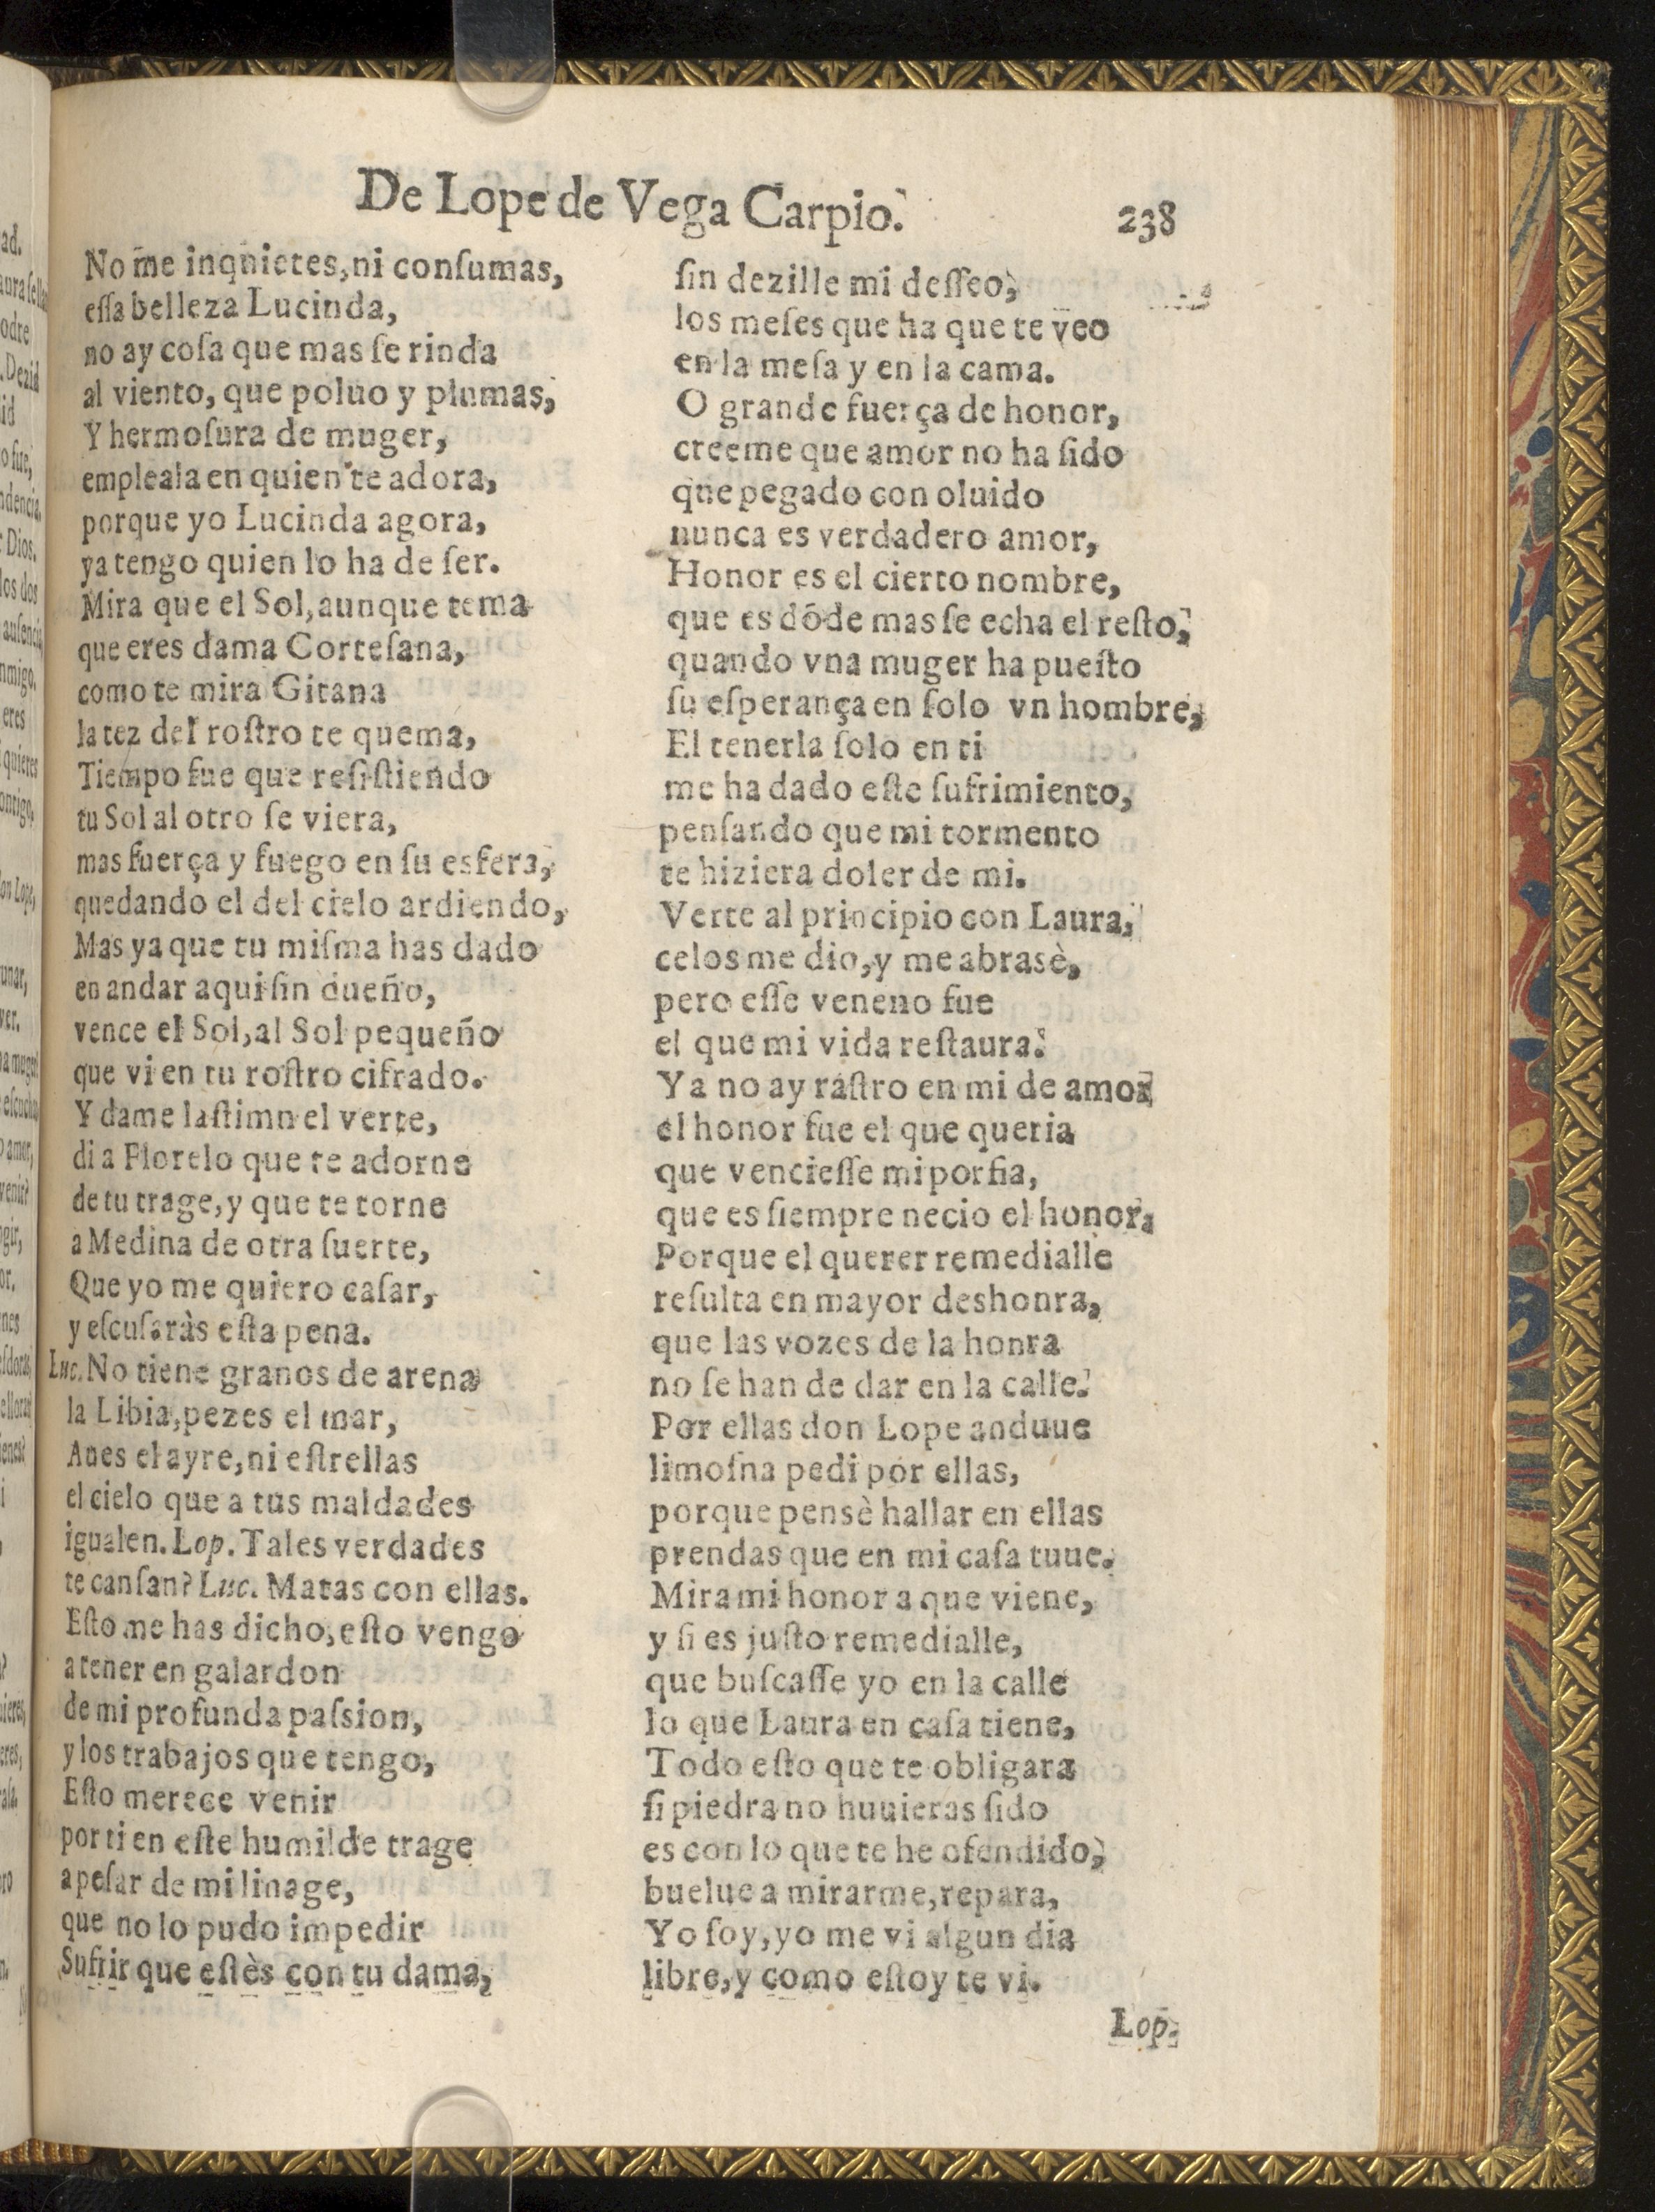 De Lope de Vega Carpio. 238
No me inquietes, ni conſumas,
eſſa belleza Lucinda,
no ay coſa que mas ſe rinda
al viento, que poluo y plumas,
Y hermoſura de muger,
empleala en quien te adora,
porque yo Lucinda agora,
ya tengo quien lo ha de ſer.
Mira que el Sol, aunque tema
que eres dama Corteſana,
como te mira Gitana
la tez del roſtro te quema,
Tiempo fue que reſiſtiendo
tu Sol al otro ſe viera,
mas fuerça y fuego en ſu esfera,
quedando el del cielo ardiendo,
Mas ya que tu miſma has dado
en andar aqui ſin dueño,
vence el Sol, al Sol pequeño
que vi en tu roſtro cifrado.
Y dame laſtimn el verte,
di a Florelo que te adorne
de tu trage, y que te torne
a Medina de otra ſuerte,
Que yo me quiero caſar,
y eſcuſaràs eſta pena.
Luc. No tiene granos de arena
la Libia, pezes el mar,
Aues el ayre, ni eſtrellas
el cielo que a tus maldades
igualen. Lop. Tales verdades
te canſan? Luc. Matas con ellas.
Eſto me has dicho, eſto vengo
a tener en galardon
de mi profunda paſsion,
y los trabajos que tengo,
Eſto merece venir
por ti en eſte humilde trage
a peſar de mi linage,
que no lo pudo impedir
Sufrir que eſtès con tu dama,
ſin dezille mi deſſeo,
los meſes que ha que te veo
en la meſa y en la cama.
O grande fuerça de honor,
creeme que amor no ha ſido
que pegado con oluido
nunca es verdadero amor,
Honor es el cierto nombre,
que es dõde mas ſe echa el reſto,
quando vna muger ha pueſto
ſu eſperança en ſolo vn hombre,
El tenerla ſolo en ti
me ha dado eſte ſufrimiento,
penſando que mi tormento
te hiziera doler de mi.
Verte al principio con Laura,
celos me dio, y me abrasè,
pero eſſe veneno fue
el que mi vida reſtaura.
Ya no ay raſtro en mi de amor
el honor fue el que queria
que vencieſſe mi porfia,
que es ſiempre necio el honor,
Porque el querer remedialle
reſulta en mayor deshonra,
que las vozes de la honra
no ſe han de dar en la calle.
Por ellas don Lope anduue
limoſna pedi por ellas,
porque pensè hallar en ellas
prendas que en mi caſa tuue.
Mira mi honor a que viene,
y ſi es juſto remedialle,
que buſcaſſe yo en la calle
lo que Laura en caſa tiene,
Todo eſto que te obligara
ſi piedra no huuieras ſido
es con lo que te he ofendido,
buelue a mirarme, repara,
Yo ſoy, yo me vi algun dia
libre, y como eſtoy te vi.
Lop.